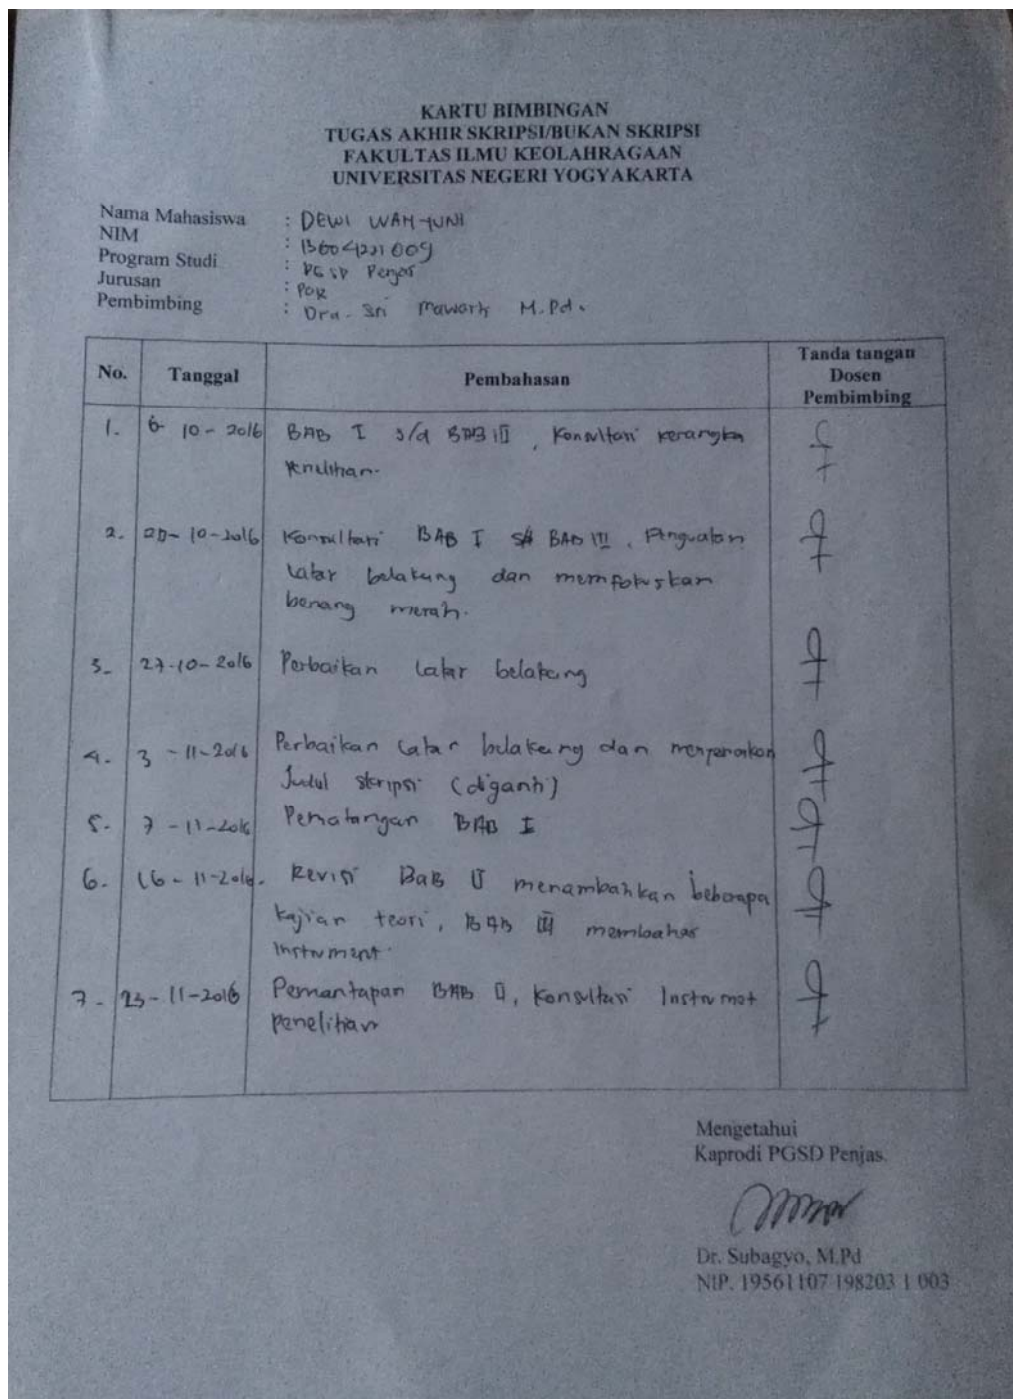 KARTU BIMBINGAN
TUGAS AKHIR SKRIPSI/BUKAN SKRIPSI
FAKULTAS ILMU KEOLAHRAGAAN
UNIVERSITAS NEGERI YOGYAKARTA
Nama Mahasiswa : DEWI WAHYUNI
NIM : 13604221009
Program Studi : PGSD Penjas
Jurusan : POR
Pembimbing : Dra. Sri Mawarti M.Pd.
No. Tanggal Pembahasan Tanda tangan Dosen Pembimbing
1. 6-10-2016 BAB I s/d BAB III, Konsultasi kerangka
Penelitian.
2. 20-10-2016 Konsultasi BAB I s/d BAB III. Penguatan
latar belakang dan memfokuskan
benang merah.
3. 27-10-2016 Perbaikan latar belakang
4. 3-11-2016 Perbaikan latar belakang dan
Judul skripsi (diganti)
5. 7-11-2016 Pematangan BAB I
6. 16-11-2016. Revisi BAB II menambahkan beberapa
kajian teori, BAB III membahas
Instrument.
7. 23-11-2016 Pemantapan BAB II, Konsultasi Instrumet
penelitian
Mengetahui
Kaprodi PGSD Penjas.
Dr. Subagyo, M.Pd
NIP. 19561107 198203 1 003